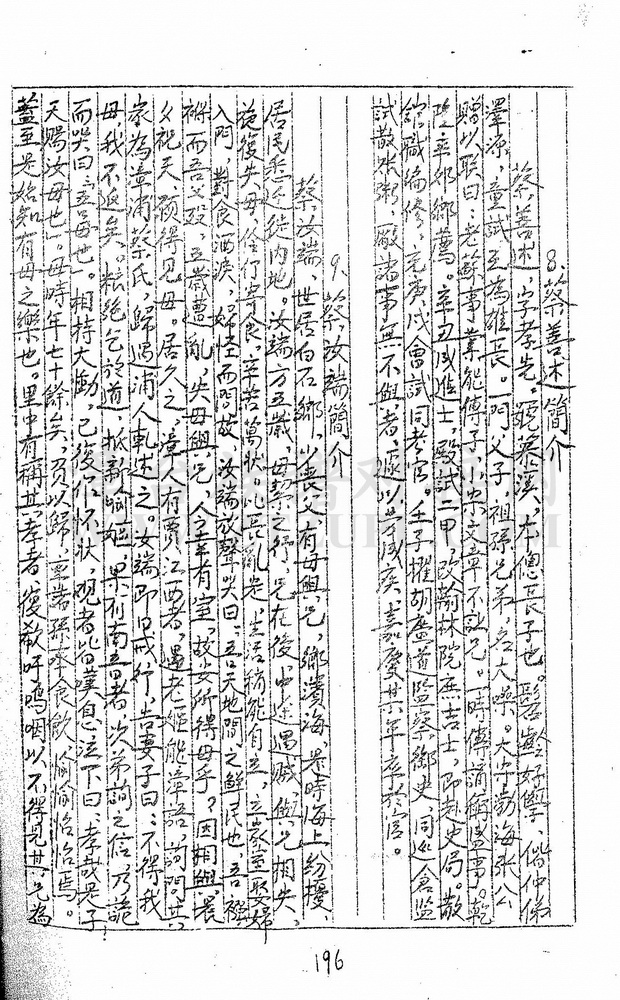 8、蔡善述簡介
蔡善述，字孝先。號蔡溪，本總長子也。髫齡好學，偕仲俤
澤源，童試互為雄長。一門父子，祖孫兄弟，名大噪。大宗勛海張公
贈以聯曰：老蘇事業能傳子，小宋文章不讓兄。一時傳誦稱盛事。乾
隆辛卯鄉薦。辛丑成進士，殿試二甲，改翰林院庶吉士，即赴史局。散
館職編修，充庚戌會試同考官。壬子擢胡盧道監察御史，同巡倉監
試散賑粥廠諸事無不與者，遂以勞成疾，嘉慶某年卒於官。
9、蔡汝端簡介
蔡汝端，世居白石鄉，少喪父，有母與兄，鄉濱海，是時海上紛擾，
居民悉遷徙內地。汝端方五歲，母挈之行，兄在後，中途遇賊，與兄相失，
旋復失母，伶仃寄食，辛苦萬狀。比長亂定，生活稍能自立，立家室娶婦
入門，對食洒淚，婦怪而問故，汝端放聲哭曰：吾天地間之鮮民也，吾襁
褓而吾父歿，五歲遭亂，失母與兄，今幸有室，故安所得母乎？因相與晨
夕祝天，願得見母。居久之，漳人有賈江西者，遇老嫗能漳語，詢問其
家為漳浦蔡氏，歸遇浦人軋述之汝端即日戒行，告妻子曰：不得我
母，我不返矣。粮絕乞於道，抵新喻嫗果有南音者，次弟詢之信，乃跪
而哭曰：“吾母也”。相持大慟，已復作怀狀，观者皆嘆息泣下曰：孝哉是子
天賜汝母也”。母時年七十餘矣，負以歸，率諸孫奉食飲，愉愉怡怡焉。
蓋至是始知有母之樂也。里中有稱其孝者，復欷吁嗚咽以不得見其兄為
196